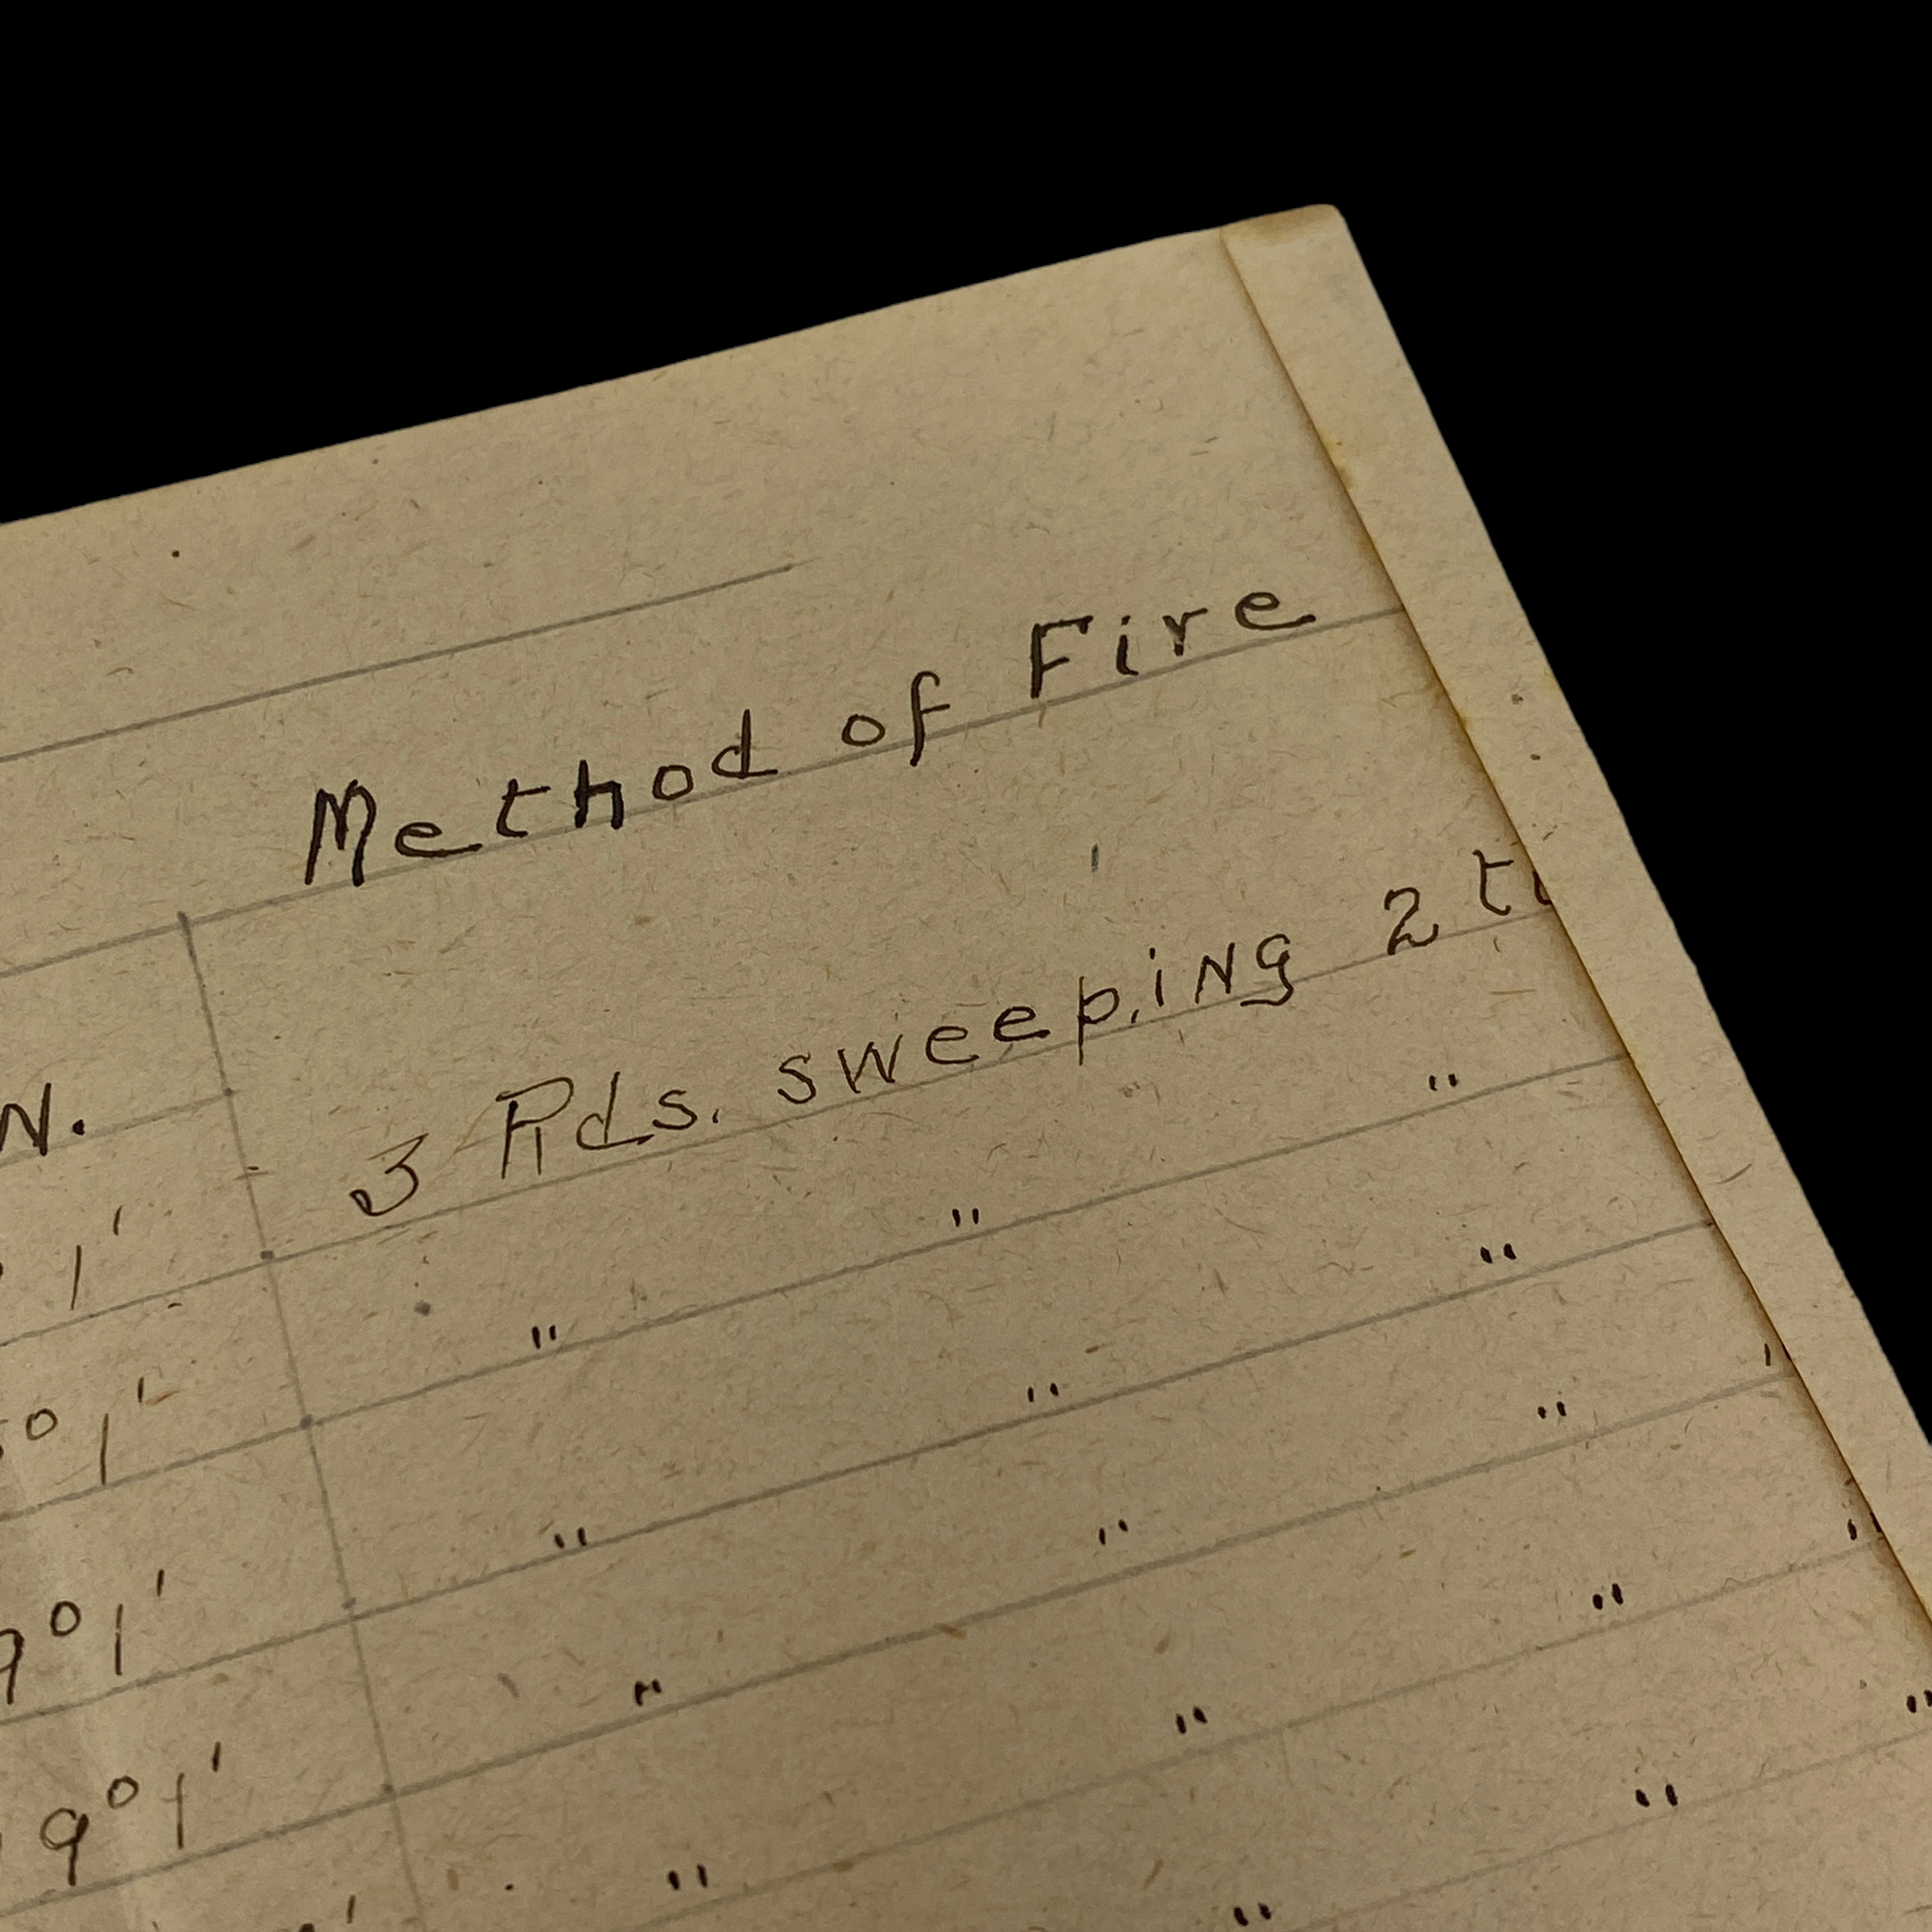 Method of Fire
N. 3 Rds. sweeping 2
1' " " "
° 1' " " "
9° 1' " " " "
9° 1' " " " "